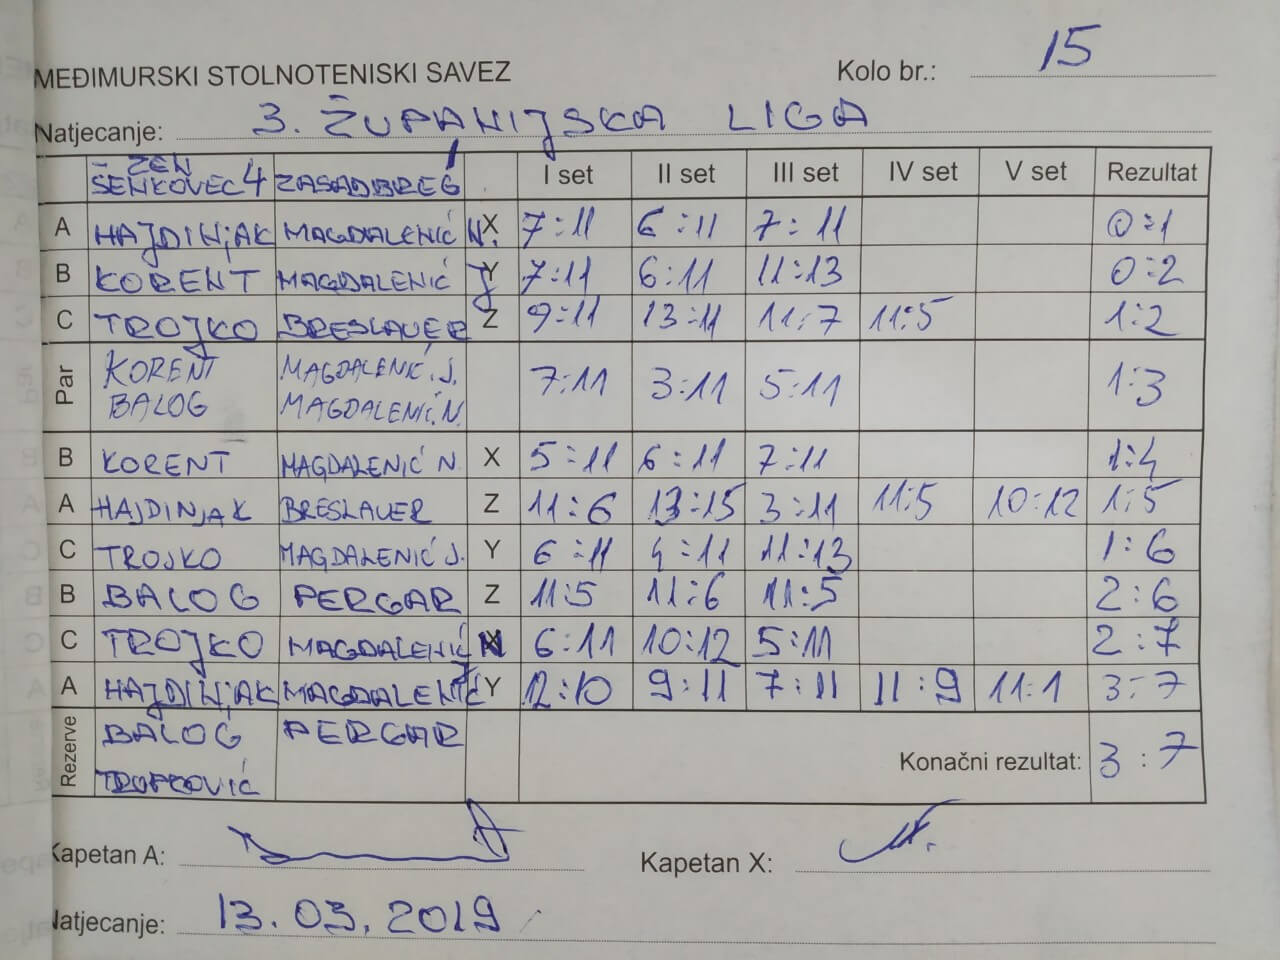 MEĐIMURSKI STOLNOTENISKI SAVEZ Kolo br.: 15
Natjecanje: 3. ŽUPANIJSKA LIGA
ŽEN
ŠENKOVEC 4 ZASADBREG I set II set III set IV set V set Rezultat
A HAJDINJAK MAGDALENIĆ N. X 7:11 6:11 7:11 0:1
B KORENT MAGDALENIĆ J Y 7:11 6:11 11:13 0:2
C TROJKO BRESLAUER Z 9:11 13:11 11:7 11:5 1:2
Par KORENT MAGDALENIĆ.J. 7:11 3:11 5:11 1:3
BALOG MAGDALENIĆ.N.
B KORENT MAGDALENIĆ N. X 5:11 6:11 7:11 1:4
A HAJDINJAK BRESLAUER Z 11:6 13:15 3:11 11:5 10:12 1:5
C TROJKO MAGDALENIĆ J. Y 6:11 4:11 11:13 1:6
B BALOG PERGAR Z 11:5 11:6 11:5 2:6
C TROJKO MAGDALENIĆ N 6:11 10:12 5:11 2:7
A HAJDINJAK MAGDALENIĆ J Y 12:10 9:11 7:11 11:9 11:1 3:7
Rezerve BALOG PERGAR
Konačni rezultat: 3:7
Kapetan A: Kapetan X:
Natjecanje: 13.03.2019